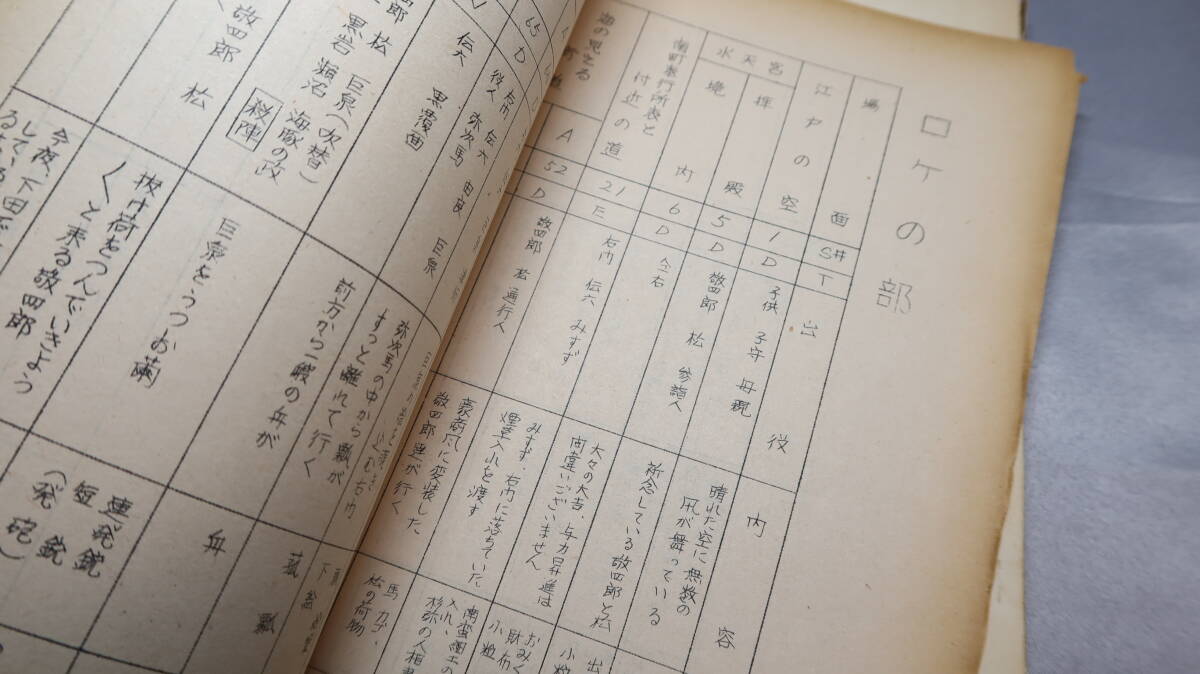 ロケの部
場面
S#
T
出役
内容
江戸の空
1
D
子供 子守 母親
晴れた空に無数の
凧が舞っている
水天宮
拝殿
5
D
敬四郎 松 参詣人
祈念している敬四郎と松
境内
6
D
仝右
大々の大吉、与力昇進は
間違いございません
南町奉行所表と
付近の道
21
E
右内 伝六 みすず
みすず、右内に落ちていた
煙草入れを渡す
海の見える
A
52
D
敬四郎 松 通行人
豪商風に変装した
敬四郎連が行く
馬 カゴ、
松の荷物
65
D
右内 伝六
役人 弥次馬 由良 巨泉
弥次馬の中から瓢が
すっと離れて行く
伝六 黒覆面
前方から一艘の舟が
松 巨泉(吹替)
黒岩 瀬沼 海豚の政
殺陣
巨泉をうつお繭
舟
敬四郎 松
抜け荷をつんでいきよう
く〵と来る敬四郎
連発銃
短銃
(発砲)
今夜、下田で